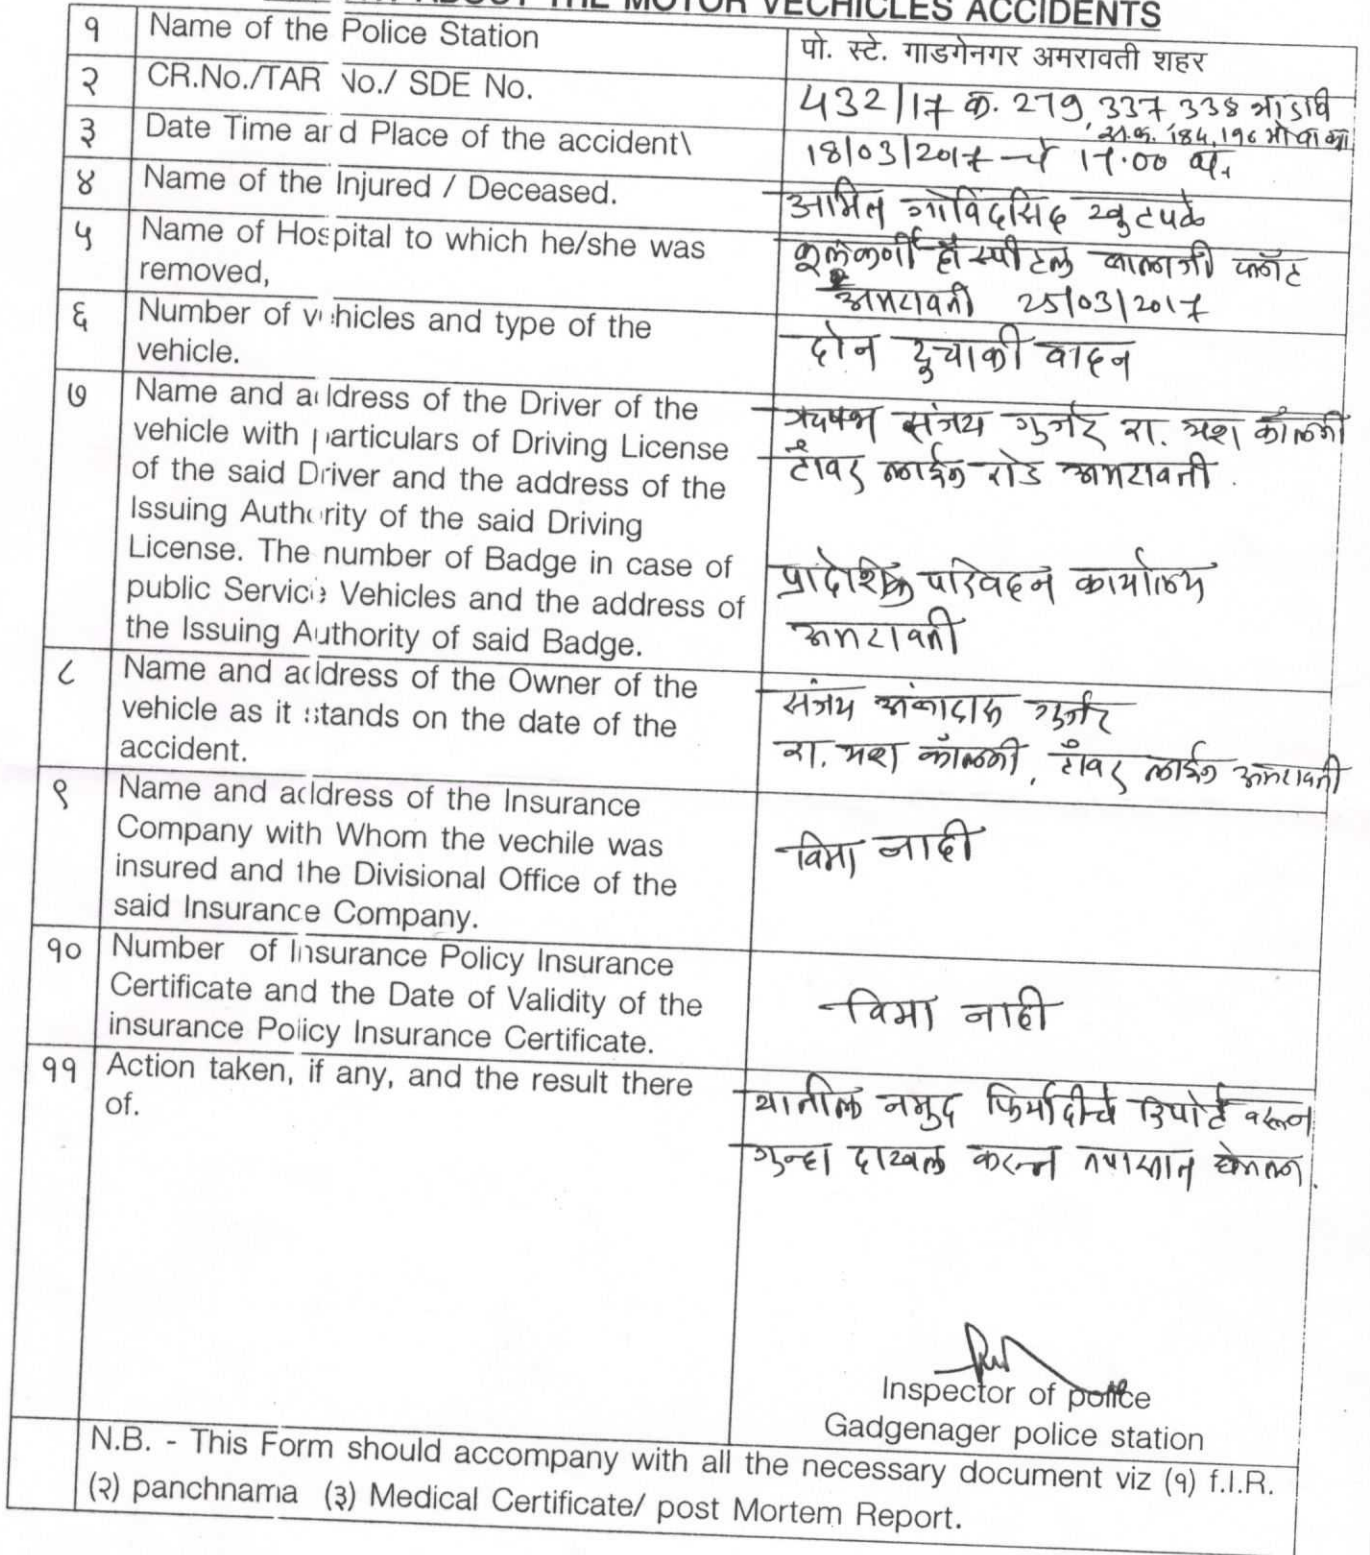 ABOUT THE MOTOR VECHICLES ACCIDENTS
१ Name of the Police Station
पो. स्टे. गाडगेनगर अमरावती शहर
२ CR.No./TAR No./ SDE No.
432/17 क. 279, 337 338 भादवि
184, 196 मो वा का
३ Date Time and Place of the accident\
18/03/2017 चे 17.00 वा.
४ Name of the Injured / Deceased.
अमित गोविंदसिंह
५ Name of Hospital to which he/she was
removed,
कूलकर्णी हॉस्पीटल बालाजी प्लॉट
अमरावती 25/03/2017
६ Number of vehicles and type of the
vehicle.
दोन दुचाकी वाहन
७ Name and address of the Driver of the
vehicle with particulars of Driving License
of the said Driver and the address of the
Issuing Authority of the said Driving
License. The number of Badge in case of
public Service Vehicles and the address of
the Issuing Authority of said Badge.
ऋषभ संजय गुर्जर रा. यश कॉलनी
टॉवर लाईन रोड अमरावती.
प्रादेशिक परिवहन कार्यालय
अमरावती
८ Name and address of the Owner of the
vehicle as it stands on the date of the
accident.
संजय अंबादास गुर्जर
रा. यश कॉलनी, टॉवर लाईन अमरावती
९ Name and address of the Insurance
Company with Whom the vechile was
insured and the Divisional Office of the
said Insurance Company.
विमा नाही
१० Number of Insurance Policy Insurance
Certificate and the Date of Validity of the
insurance Policy Insurance Certificate.
विमा नाही
११ Action taken, if any, and the result there
of.
यातील नमुद फिर्यादीचे रिपोर्ट वरून
गुन्हा दाखल करून तपासात घेतला.
Inspector of police
Gadgenager police station
N.B. - This Form should accompany with all the necessary document viz (१) f.I.R.
(२) panchnama (३) Medical Certificate/ post Mortem Report.